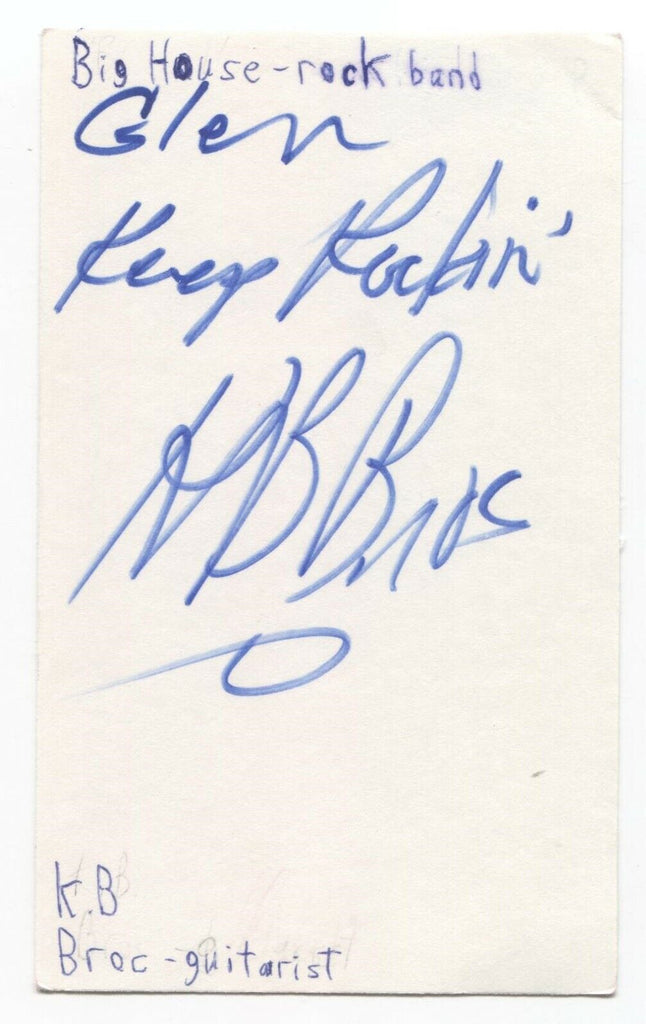 Big House - rock band
Glen
Keep Rockin'
KB Broc
K.B
Broc - guitarist